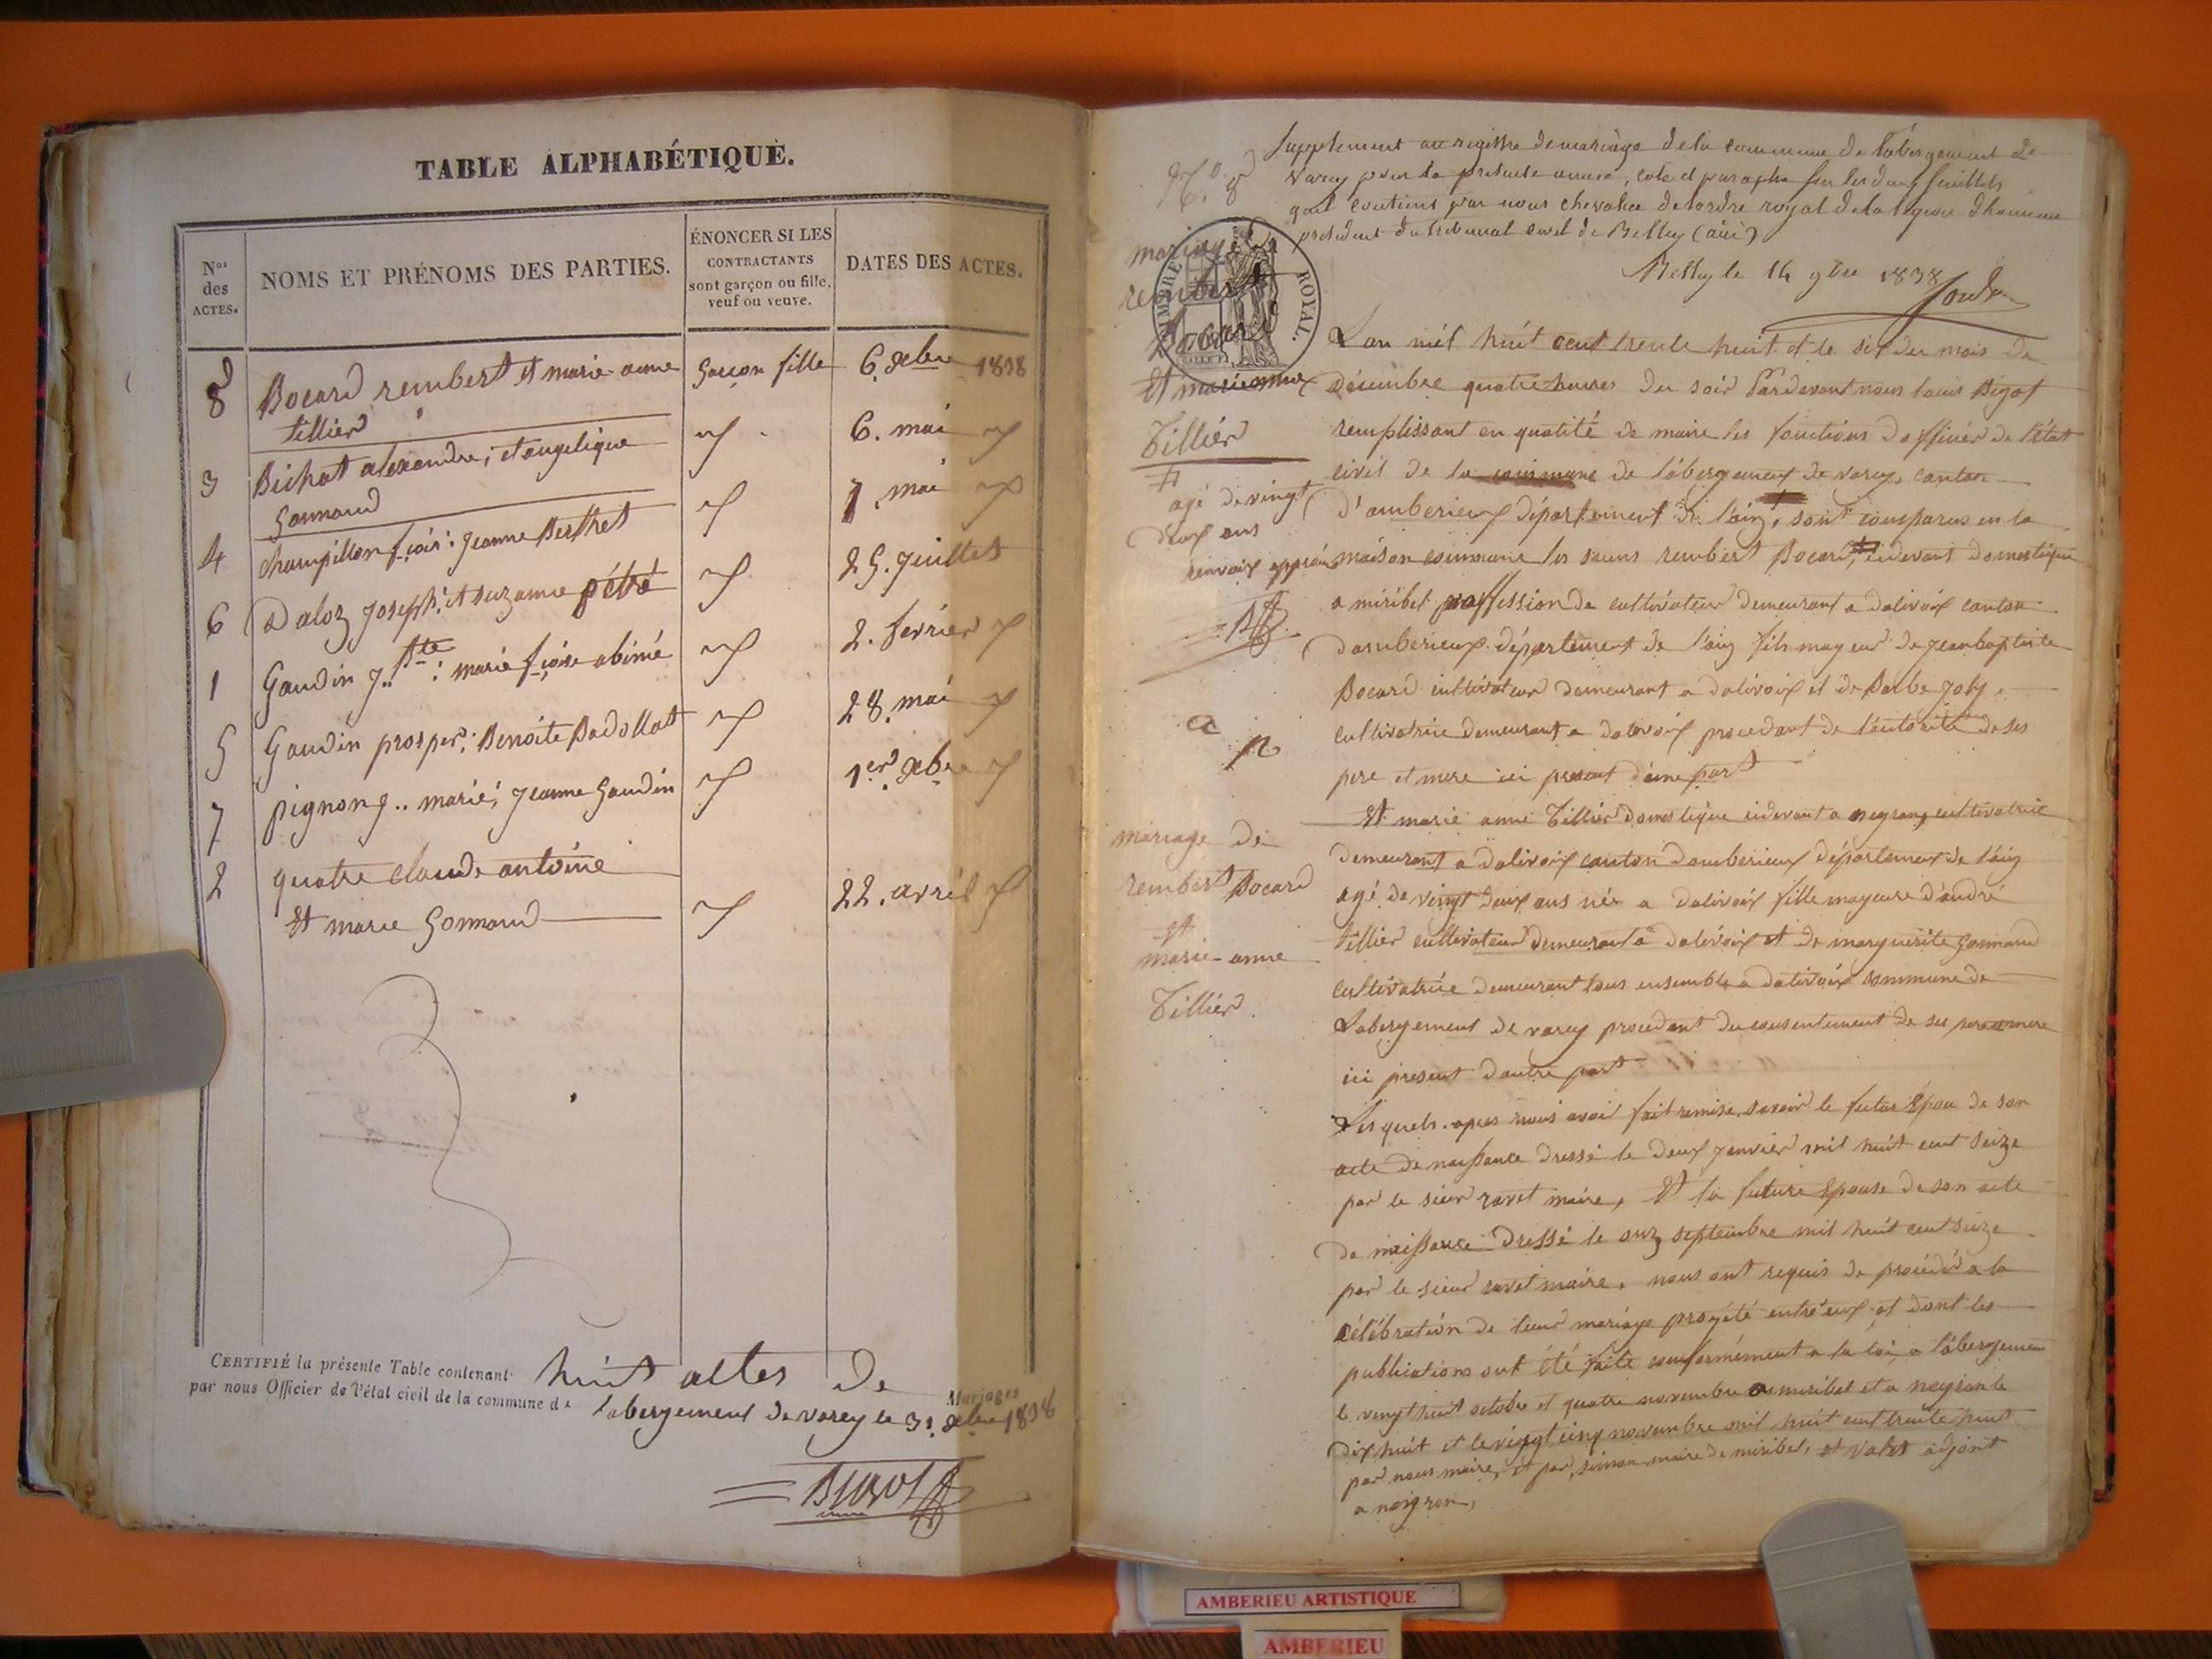 TABLE ALPHABÉTIQUE.
Nos des ACTES.
NOMS ET PRÉNOMS DES PARTIES.
ÉNONCER SI LES CONTRACTANTS sont garçon ou fille, veuf ou veuve.
DATES DES ACTES.
8 Bocard rembert et marie anne Garçon fille 6. xbre 1838
tillier
3 Bichat alexandre, et angelique 6. mai
Gonnand
4 Champillon fçois: Jeanne Berthet 7. mai
6 Daloz Joseph: et suzanne pétré 25. Juillet
1 Gaudin J.. Bte: marie fçoise abimé 2. fevrier
5 Gaudin prosper: Benoite Badollat 28. mai
7 pignon J.. marie; Jeanne Gaudin 1er xbre
2 quatre claude antoine
et marie Gonnand 22. avril
CERTIFIÉ la présente Table contenant huit actes de Mariages
par nous Officier de l'état civil de la commune de l'abergement de varey le 31. xbre 1838
BIGOT
Supplement au registre de mariage de la commune de l'abergement de
Varey pour la presente année, coté et paraphé sur les deux feuillets
quil contient par nous chevalier de l'ordre royal de la legion dhonneur
president du tribunal civil de Belley (ain)
Belley le 14 9bre 1838
No. 8
mariage
rembert
Bocard
et marie anne
Tillier
TIMBRE ROYAL.
agé de vingt
deux ans
renvoi approuvé
L'an mil huit cent trente huit et le six du mois de
Décembre quatre heures du soir Pardevant nous louis Bigot
remplissant en qualité de maire les fonctions d officier de l'état
civil de la commune de l'abergement de varey, canton
d'amberieux département de l'ain, sont comparus en la
maison commune les sieurs rembert Bocard, cidevant domestique
a miribel proffession de cultivateur demeurant a dalivoix canton
damberieux département de l'ain fils mageur de Jean baptiste
Bocard cultivateur demeurant a dalivoix et de Barbe Joly
cultivatrice demeurant a dalivoix procedant de l'autorité de ses
pere et mere ici present d'une part
mariage de
rembert Bocard
et
marie-anne
Tillier.
Et marie anne Tillier domestique cidevant a neyron, cultivatrice
demeurant a dalivoix canton damberieux département de l'ain
agé de vingt deux ans née a dalivoix fille mageure d'andré
tillier cultivateur demeurant a dalivoix et de marguerite Gonnand
cultivatrice demeurant tous ensemble a dalivoix commune de
Labergement de varey procedant du consentement de ses pere et mere
ici present dautre part
Les quels apres nous avoir fait remise, savoir le futur Epou de son
acte de naissance dressé le deux janvier mil huit cent seize
par le sieur ravet maire, Et la future Epouse de son acte
de naissance dressé le onze septembre mil huit cent seize
par le sieur ravet maire, nous ont requis de procédér a la
célébration de leur mariage projété entre eux et dont les
publications ont été faite conformément a la loi, a l'abergement
le vingt huit octobre et quatre novembre a miribel et a neyron le
dix huit et le vingt cinq novembre mil huit cent trente huit
par nous maire, et par, simon maire de miribel, et valet adjoint
a neyron,
AMBERIEU ARTISTIQUE
AMBERIEU